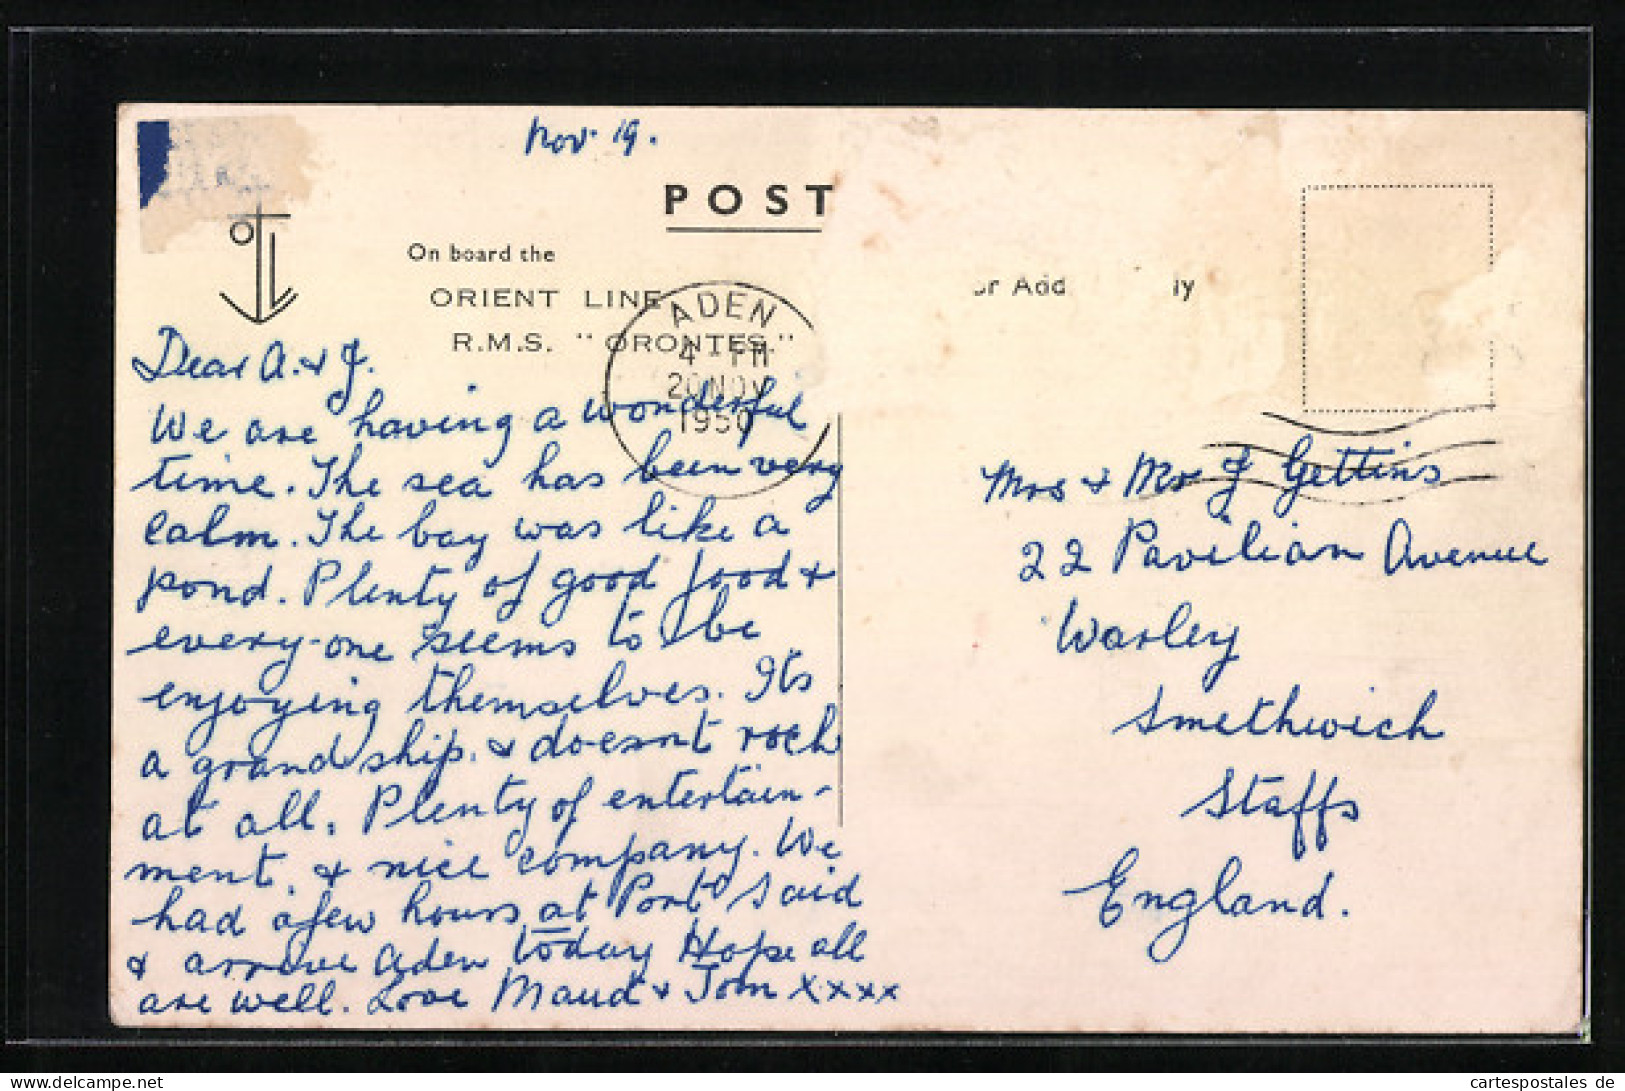 Nov. 19.
POST
On board the
ORIENT LINE
R.M.S. "ORONTES."
ADEN
4 - PM
20 NOV
1950
Dear A. & J.
We are having a wonderful
time. The sea has been very
calm. The bay was like a
pond. Plenty of good food &
every-one seems to be
enjoying themselves. Its
a grand ship. & doesnt rock
at all. Plenty of entertain-
ment. & nice company. We
had a few hours at Port Said
& arrive Aden today Hope all
are well. Love Maud & Tom xxxx
or Add ly
Mrs & Mr J Gettins
22 Pavilian Avenue
Warley
Smethwich
Staffs
England.
cartespostales de